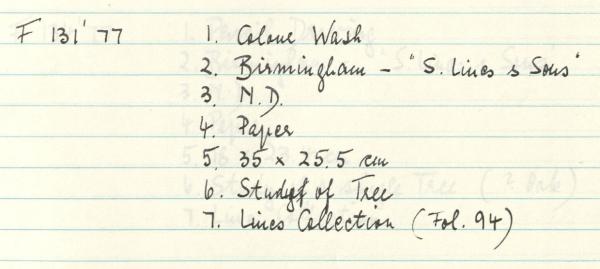 F 131'77 1. Colour Wash
2. Birmingham - "S. Lines & Sons"
3. N.D.
4. Paper
5. 35 x 25.5 cm
6. Study of Tree
7. Lines Collection (Fol. 94)